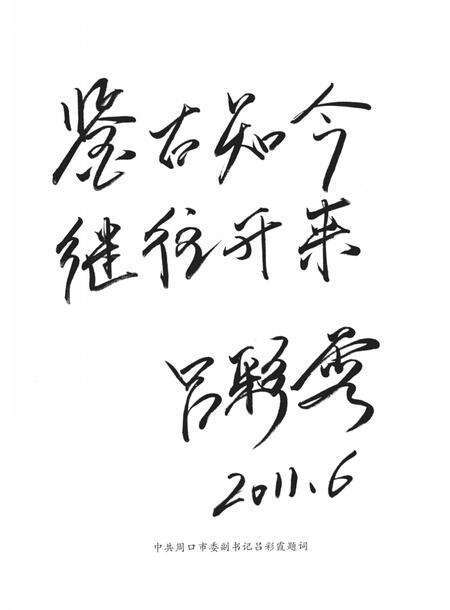 鉴古知今
继往开来
吕彩霞
2011.6
中共周口市委副书记吕彩霞题词